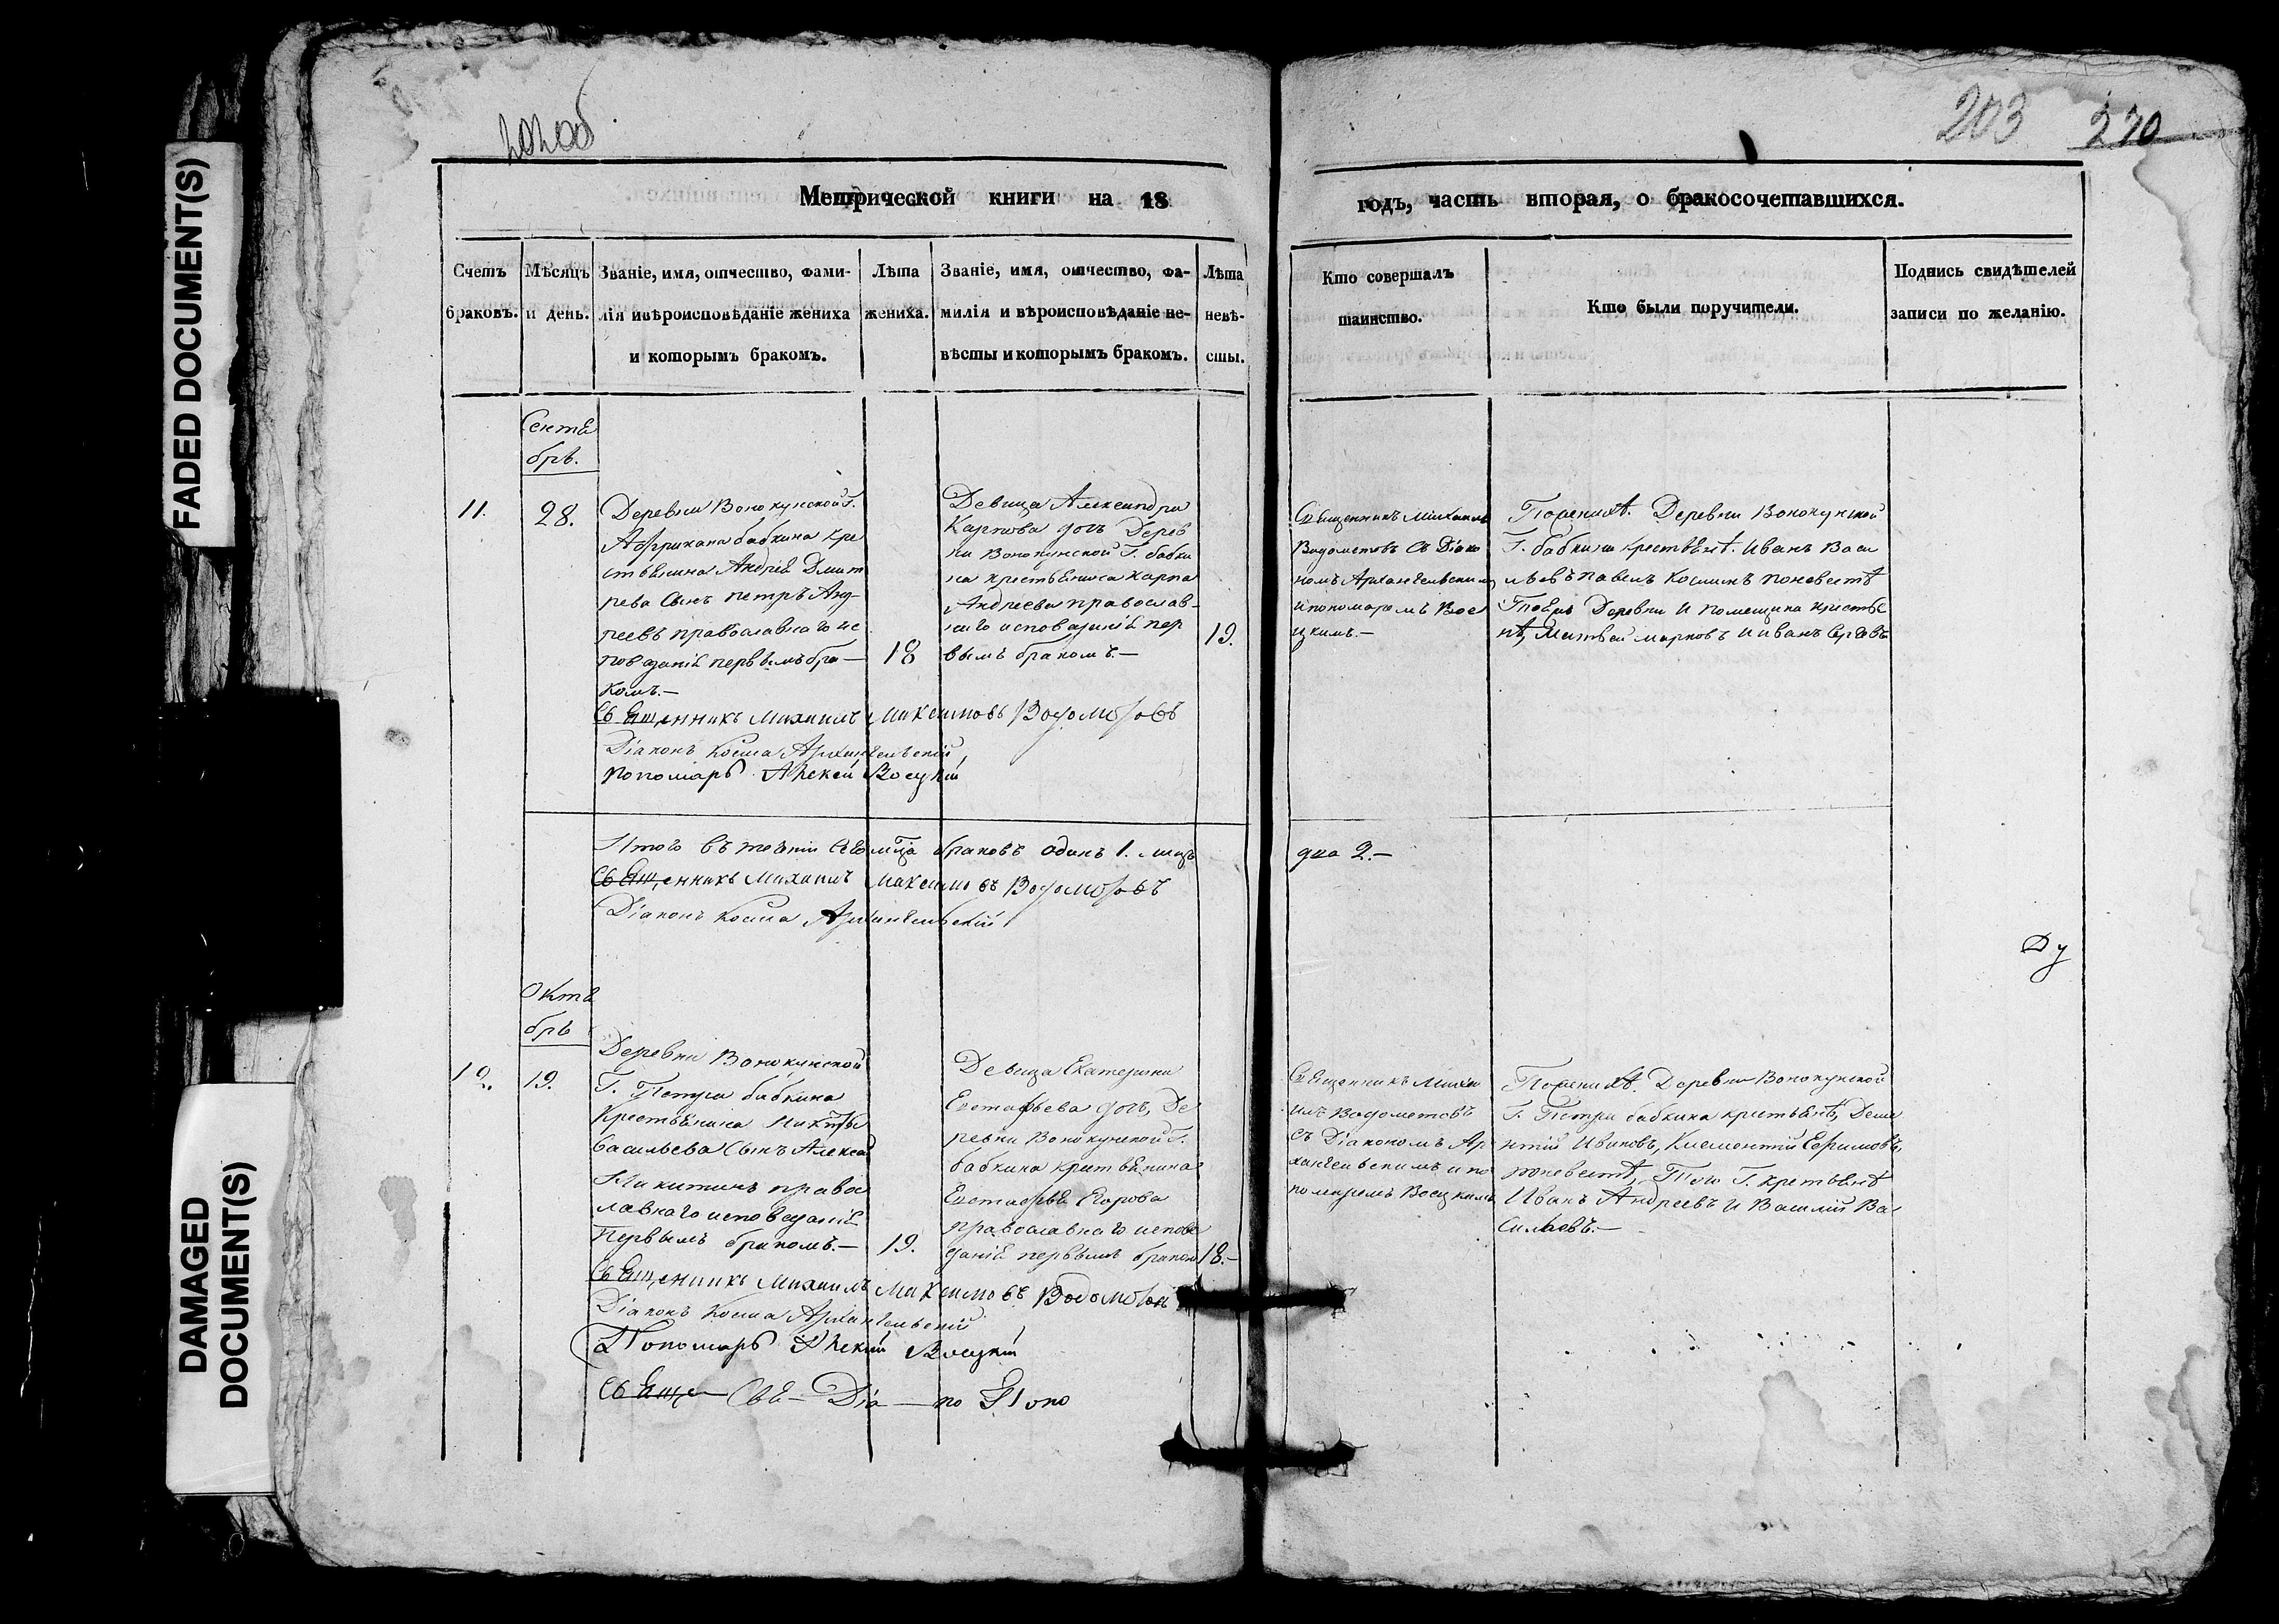 FADED DOCUMENT(S)
DAMAGED
DOCUMENT(S)
202 об
203
270
Метрической книги на 18
годъ, часть вторая, о бракосочетавшихся.
Счетъ
браковъ.
Мѣсяцъ
и день.
Званіе, имя, отчество, фами-
лія и вѣроисповѣданіе жениха
и которымъ бракомъ.
Лѣта
жениха.
Званіе, имя, отчество, фа-
милія и вѣроисповѣданіе не-
вѣсты и которымъ бракомъ.
Лѣта
невѣ-
сты.
Кто совершалъ
таинство.
Кто были поручители.
Подпись свидѣтелей
записи по желанію.
Сентя
брь.
11.
28.
Деревни Вонокунской Г.
Аффрикана бабкина кре
стьянина Андрея Дмит
рева Сынъ петръ Анд-
реевъ православнаго ис
поведанія первымъ бра-
комъ.—
18
Девица Александра
Карпова дочь Дерев
ни Вонокунской Г. бабки
на крестьянина карпа
Андреева православ-
наго исповеданія пер
вымъ бракомъ.—
19.
Священникъ Михаилъ
Водометовъ Съ Діако
номъ Архангельскимъ
и пономаремъ Вос
цкимъ.—
По женихѣ. Деревни Вонокунской
Г. бабкина крестьяне. Иванъ Васи
льевъ павелъ Козминъ по невестѣ
Тоеже Деревни и помещика крестья
нѣ, Матвей марковъ и иванъ
Священникъ Михаилъ Максимовъ Водометовъ
Діаконъ Косма Архангельскій
пономарь Алексей Восцкій
Итого въ теченіи Сего мца браковъ одинъ 1. лицъ
два 2.—
Священникъ Михаилъ Максимовъ Водометовъ
Діаконъ Косма Архангельскій
Ду
Октя
брь
12.
19.
Деревни Вонокунской
Г. Петра бабкина
Крестьянина Никиты
Васильева Сынъ Алексей
Никитинъ право
лавнаго исповеданія
Первымъ бракомъ.—
19.
Девица Екатерина
Евстафьева дочь, Де
ревни Вонокунской Г.
бабкина крестьянина
Евстафья Егорова
православнаго испове
данія первымъ браком
18.—
Священникъ Миха
илъ Водометовъ
съ Діакономъ Ар
хангельскимъ и по
номаремъ Восцкимъ
По женихѣ. Деревни Вонокунской
Г. Петра бабкина крестьянѣ, Деме
нтій Ивановъ, Клементій Ефимовъ,
по невестѣ, Того Г. крестьянѣ
Иванъ Андреевъ и Василій Ва
сильевъ.—
Священникъ Михаилъ Максимовъ Водометовъ
Діаконъ Косма Архангельскій
Пономарь Алексей Восцкій
Священ— Свя— Діа— по Поно